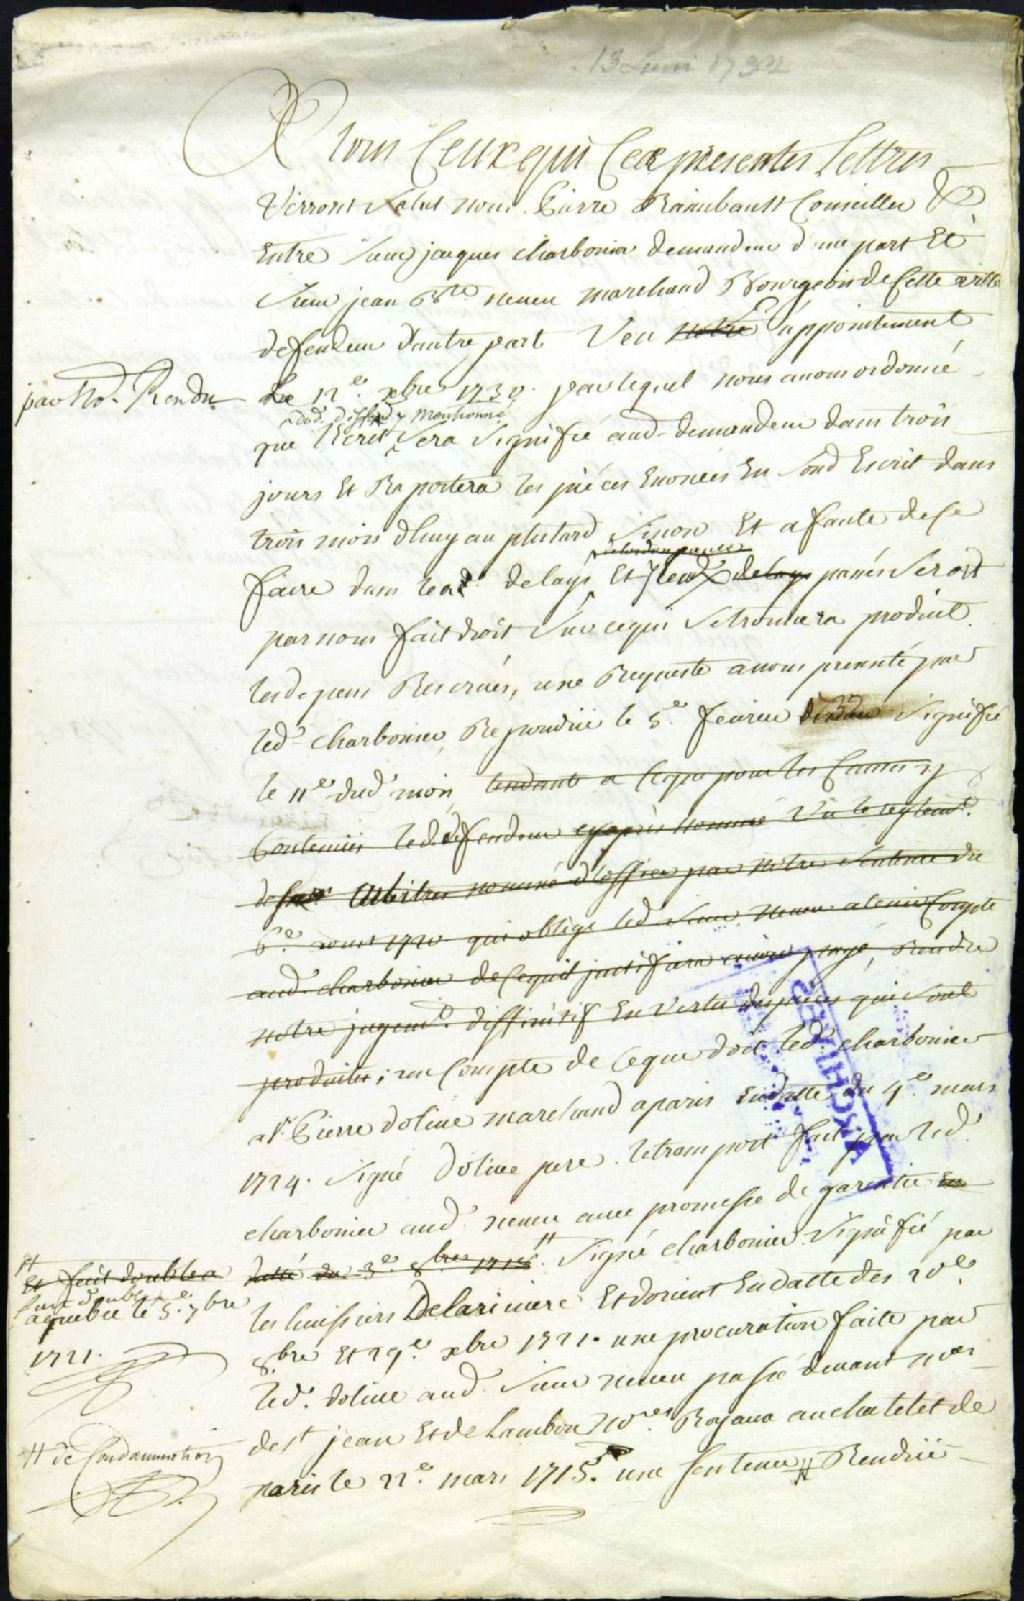 13 Juin 1732
A tous Ceux qui Ces presentes Lettres
Verront Salut nous Pierre Raimbault Conseiller &
Entre Sieur jacques charbonier demandeur d'une part Et
Sieur jean Bte neveu marchand Bourgeois de Cette ville
defendeur d'autre part Veu notre appointement
par No. Rendu
du 12e xbre 1730. par lequel nous avons ordonné
dud. deffend y Mentionné
que l'Ecrit Sera Signifié aud. demandeur dans trois
jours Et Raportera les piéces Enoncées En Sond. Escrit dans
trois mois d'huy au plustard Sinon Et a faute de Ce
faire dans lesd. delays Et Iceux delays passés Seroit
par nous fait droit Sur cequi Setrouvera produit.
les depens Reservés, une Requeste a nous presenté par
led. charbonier, Repondüe le 5e fevrier 32 Signifié
le 11e dud. mois tendante a Ceque pour les Causes y
Contenües led. defendeur Vû le reglemt.
de Arbitres nommés d'office par notre Sentence du
6e 1720 qui oblige led. Sieur neveu a tenir Compte
aud. charbonier de Cequil justifiera avoir payé, Rendre
notre jugemt. diffinitif En Vertu des pieces qui Sont
produites; un Compte de Ceque doit led. charbonier
a Sr. Pierre dolive marchand a paris En datte du 4e mars
1724. Signé dolive pere. letransport fait par led.
charbonier aud. neveu avec promesse de garentie En
datté du 3e 8bre 1718 # Signé charbonier Signifié par
# Et fait double a
fait double
a quebec le 5e 7bre
1721.
les huissiers Delariviere Et dorient En datte des 20e
8bre Et 29e xbre 1721. une procuration faite par
led. dolive aud. Sieur neveu passé devant
de St. jean Et de Lambon Nores Royaux au chatelet de
# de Condamnation
paris le 22e mars 1715. une Sentence # Rendüe
ARCHIVES